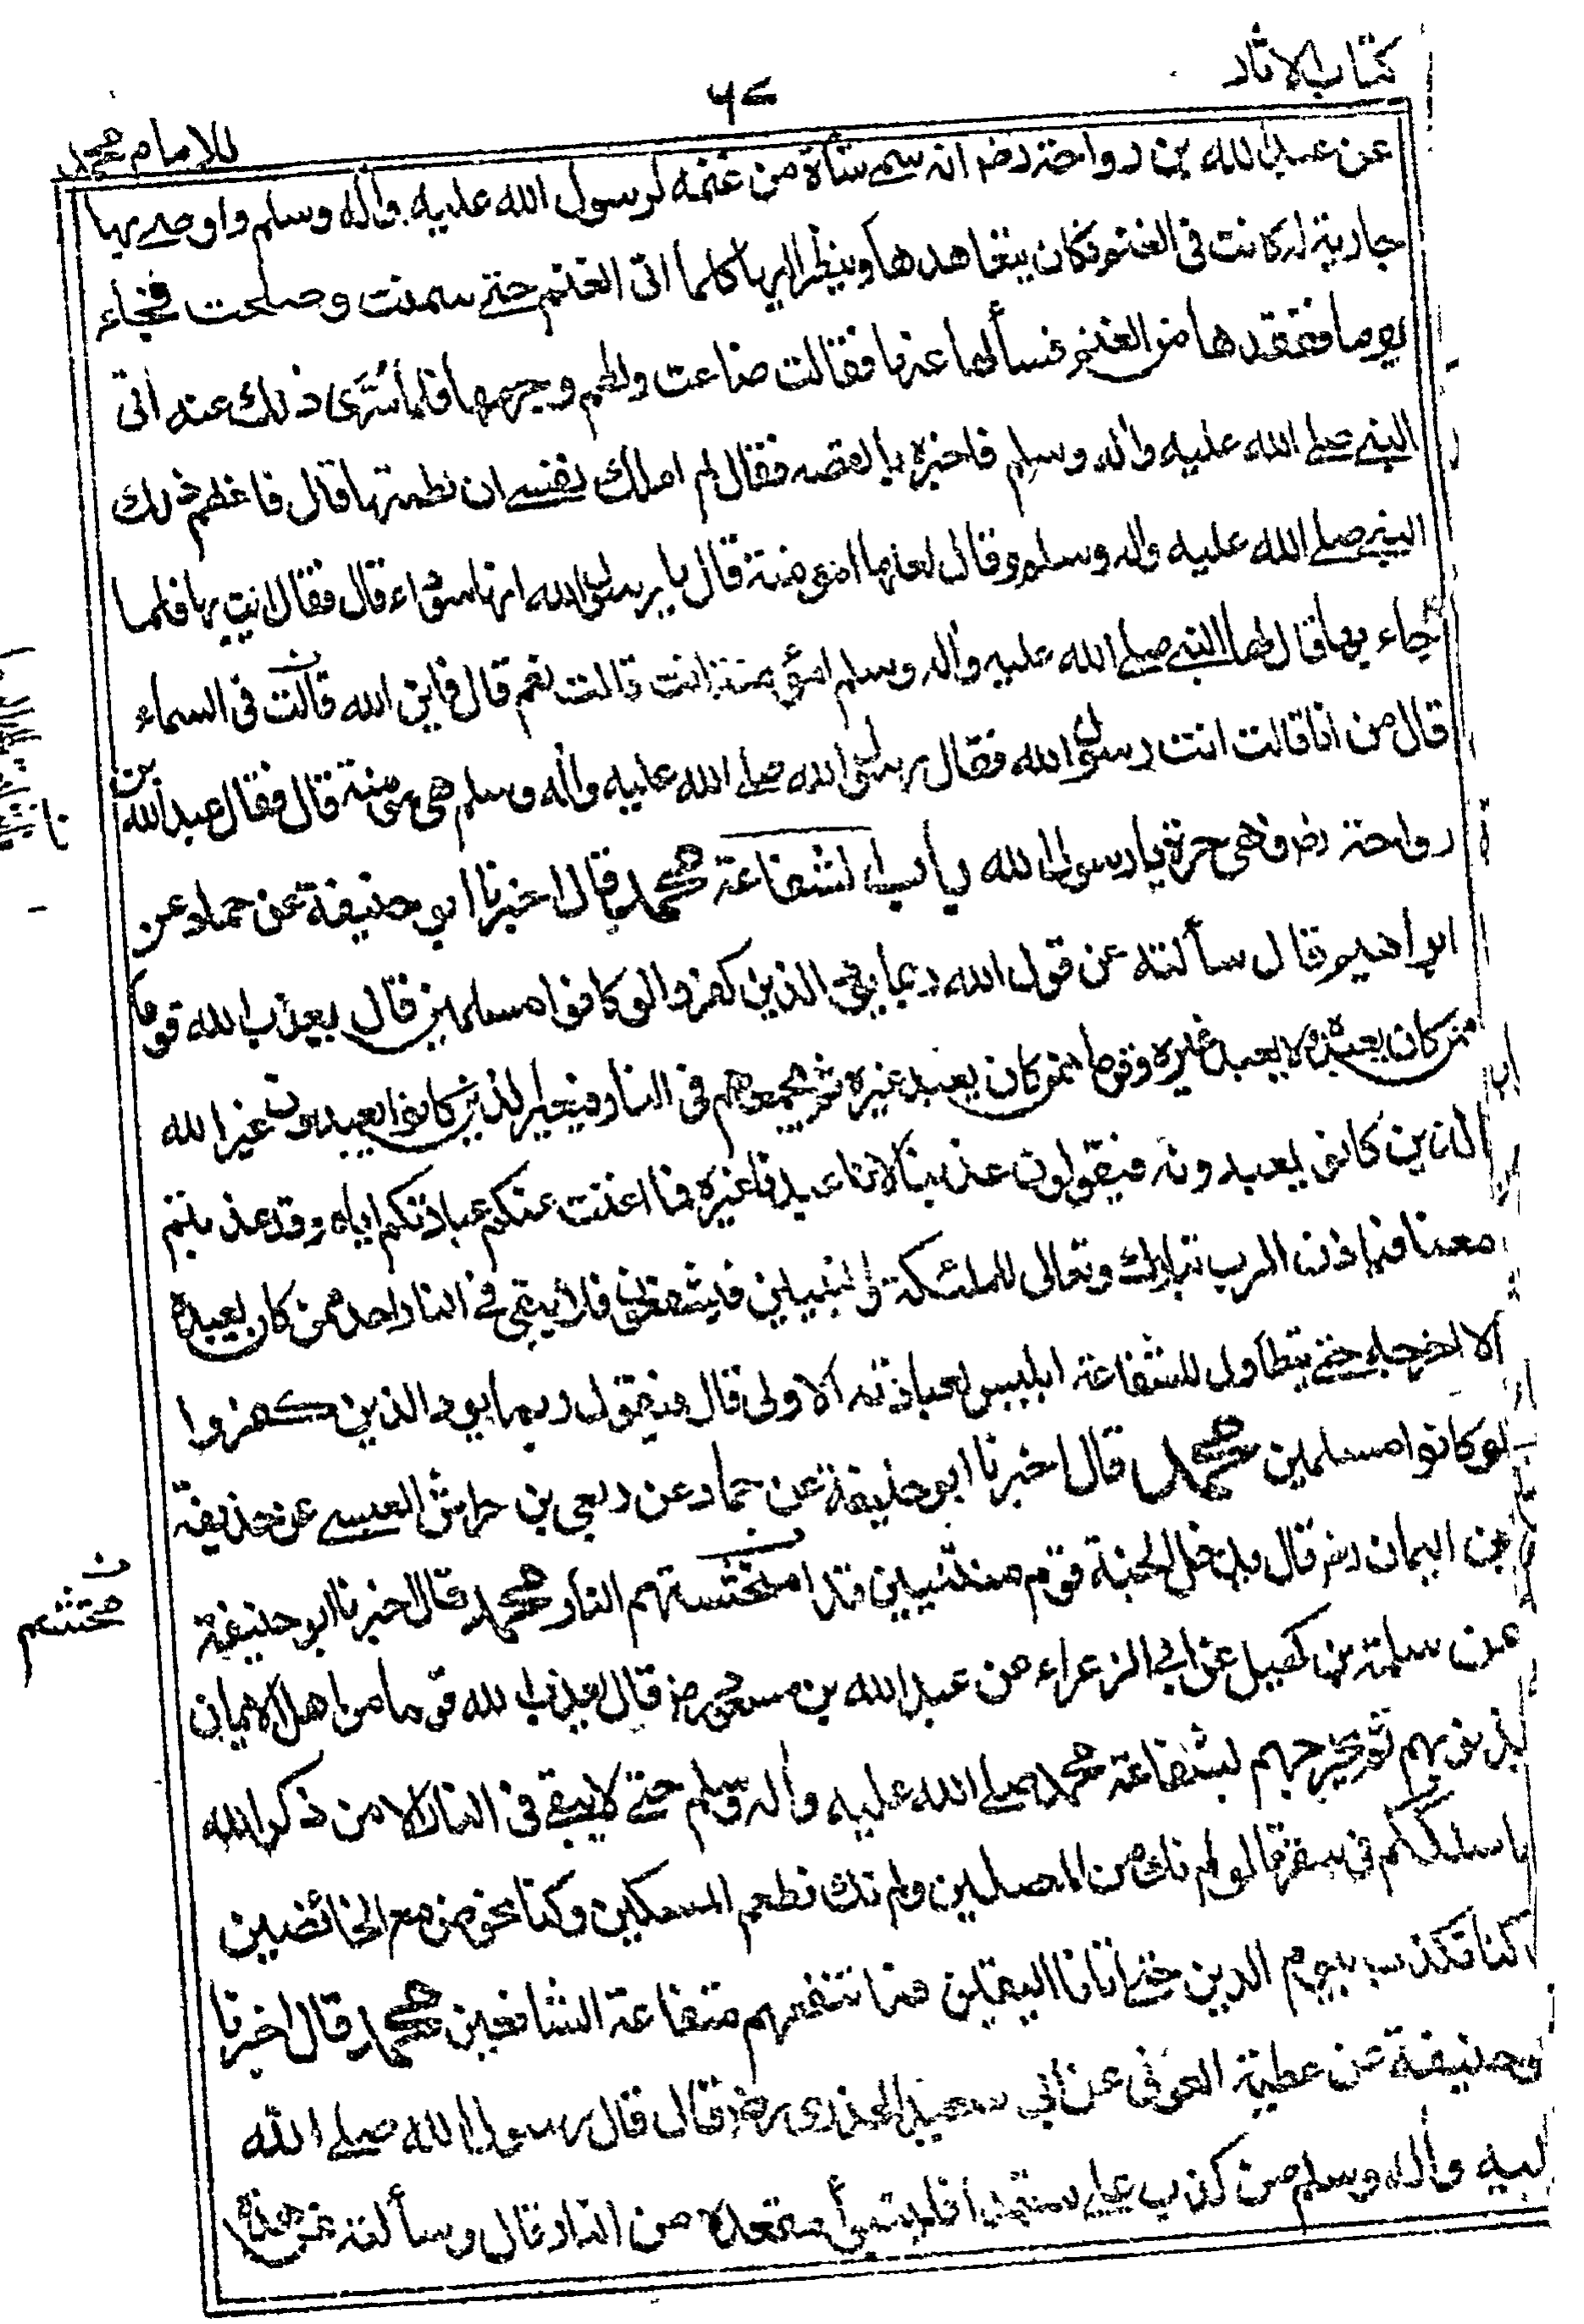 كتاب الاثار
٦٧
للامام محمد
عن عبد الله بن رواحة رضـ انه سمے شاة من غنمه لرسول الله عليه واٰله وسلم واوصے بها
جارية له كانت فى الغنم فكان يتعاهدها وينظر اليها كلما اتى الغنم حتے سمنت وصلحت فجاء
يوما ففقدها من الغنم فسألها عنها فقالت ضاعت ولطم وجهها فلما سُرّى ذلك عنه اتى
النبى صلے الله عليه واٰله وسلم فاخبره بالقصه فقال لم املك نفسے ان لطمتها قال فاعظم ذلك
النبى صلے الله عليه واله وسلم وقال لعلها مؤمنة قال يا رسول الله انها سوداء قال فقال ائيت بها فلما
جاء بها قال لها النبى صلے الله عليه واٰله وسلم امؤمنة انت قالت نعم قال فاين الله قالت فى السماء
قال من انا قالت انت رسول الله فقال رسول الله صلے الله عليه واٰله وسلم هى مؤمنة قال فقال عبد الله بن
رواحة رضـ فهى حرة يا رسول الله باب الشفاعة محمد قال اخبرنا ابو حنيفة عن حماد عن
ابراهيم قال سألته عن قول الله ربما يود الذين كفروا لو كانوا مسلمين قال يعذب الله قوما
ممن كان يعبده ولا يعبد غيره وقوما ممن كان يعبد غيره ثم يجمعهم فى النار فيعير الذين كانوا يعبدون غير الله
الذين كانوا يعبدونه فيقولون عذبنا لانا عبدنا غيره فما اغنت عنكم عبادتكم اياه وقد عذبتم
معنا فياذن الرب تبارك وتعالى للملئكة والنبيين فيشفعون فلا يبقى فے النار احد ممن كان يعبده
الا اخرجه حتے يتطاول للشفاعة ابليس لعبادته الاولى قال فيقول ربما يود الذين كفروا
لو كانوا مسلمين محمد قال اخبرنا ابو حنيفة عن حماد عن ربعى بن حراش العبسے عن حذيفة
بن اليمان رضـ قال يدخل الجنة قوم منتنين قد امتحشتهم النار محمد قال اخبرنا ابو حنيفة
عن سلمة بن كهيل عن ابى الزعراء عن عبد الله بن مسعود رضـ قال يعذب الله قوما من اهل الايمان
بذنوبهم ثم يخرجهم بشفاعة محمد صلے الله عليه واٰله وسلم حتے لا يبقے فى النار الا من ذكر الله
ما سلككم فى سقر قالوا لم نك من المصلين ولم نك نطعم المسكين وكنا نخوض مع الخائضين
وكنا نكذب بيوم الدين حتے اتانا اليقين فما تنفعهم شفاعة الشافعين محمد قال اخبرنا
ابو حنيفة عن عطية العوفى عن ابى سعيد الخدرى رضـ قال قال رسول الله صلے الله
عليه واٰله وسلم من كذب على متعمدا فليتبوأ مقعده من النار قال وسألته عن هذه